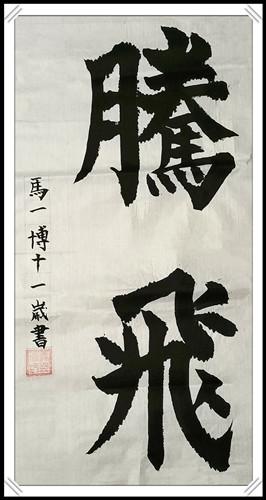 騰飛
馬一博十一歲書